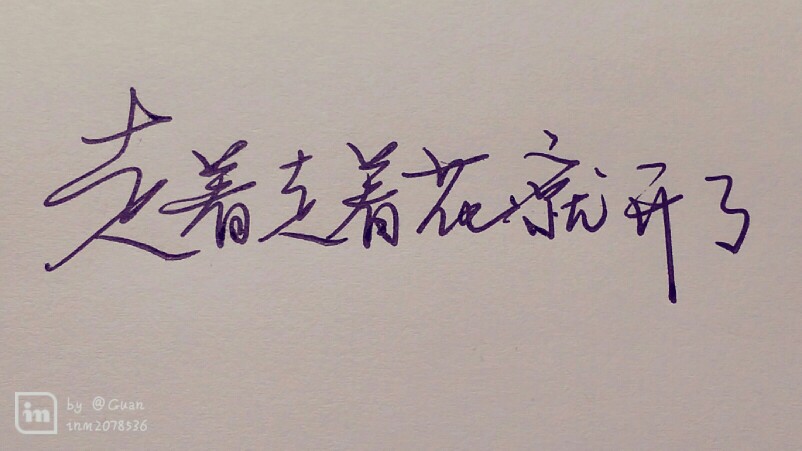 走着走着花就开了
by @Guan
inm2078536